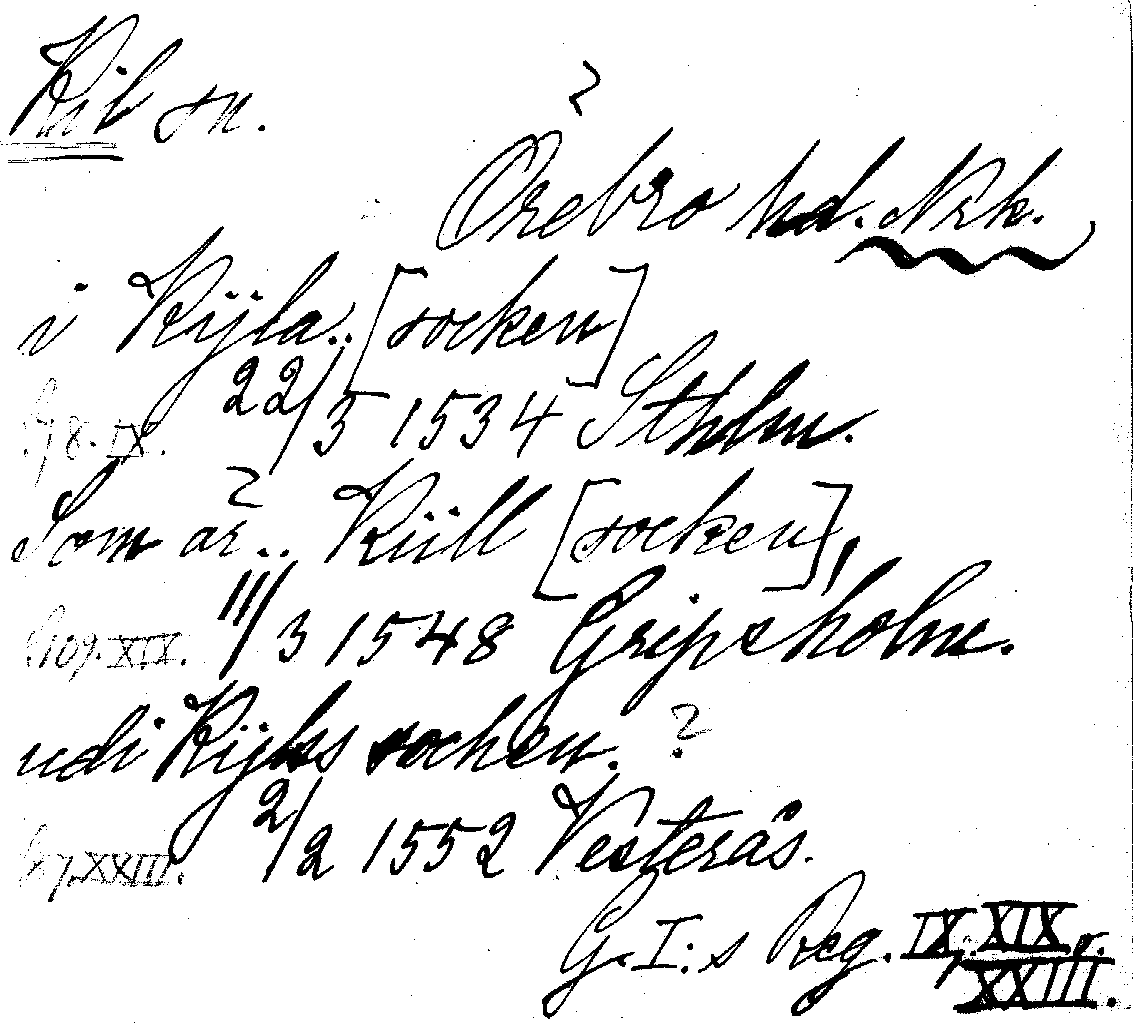 Kil sn.
?
Örebro hd. Nrk.
i Kijla.. [socken]
22/3 1534 Sthlm.
S. 78. IX.
Som är.. Kiill [socken],
11/3 1548 Gripsholm.
S. 109. XIX.
udi Kijlss sochen. ?
2/2 1552 Vesterås.
XXIII.
G. I:s Reg. IX, XIX, o.
XXIII.